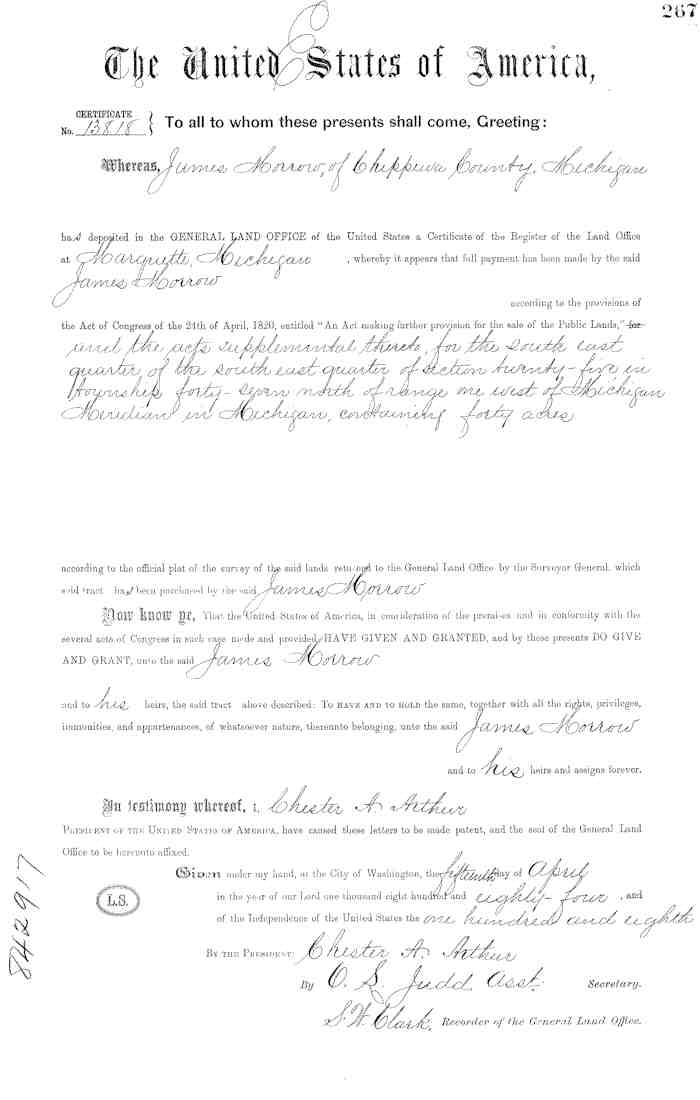 267
The United States of America,
CERTIFICATE
No. 13818 } To all to whom these presents shall come, Greeting:
Whereas, James Morrow, of Chippewa County, Michigan
has deposited in the GENERAL LAND OFFICE of the United States a Certificate of the Register of the Land Office
at Marquette, Michigan , whereby it appears that full payment has been made by the said
James Morrow
according to the provisions of
the Act of Congress of the 24th of April, 1820, entitled "An Act making further provision for the sale of the Public Lands," for
and the acts supplemental thereto, for the south east
quarter of the south east quarter of section twenty-five in
township forty-seven north of range one west of Michigan
Meridian in Michigan, containing forty acres
according to the official plat of the survey of the said lands returned to the General Land Office by the Surveyor General, which
said tract has been purchased by the said James Morrow
Now know ye, That the United States of America, in consideration of the premises and in conformity with the
several acts of Congress in such case made and provided, HAVE GIVEN AND GRANTED, and by these presents DO GIVE
AND GRANT, unto the said James Morrow
and to his heirs, the said tract above described: TO HAVE AND TO HOLD the same, together with all the rights, privileges,
immunities, and appurtenances, of whatsoever nature, thereunto belonging, unto the said James Morrow
and to his heirs and assigns forever.
In testimony whereof, I, Chester A. Arthur
PRESIDENT OF THE UNITED STATES OF AMERICA, have caused these letters to be made patent, and the seal of the General Land
Office to be hereunto affixed.
Given under my hand, at the City of Washington, the fifteenth day of April
L.S.
in the year of our Lord one thousand eight hundred and eighty-four , and
of the Independence of the United States the one hundred and eighth
BY THE PRESIDENT: Chester A. Arthur
By O. L. Judd Asst. Secretary.
S. W. Clark, Recorder of the General Land Office.
842917